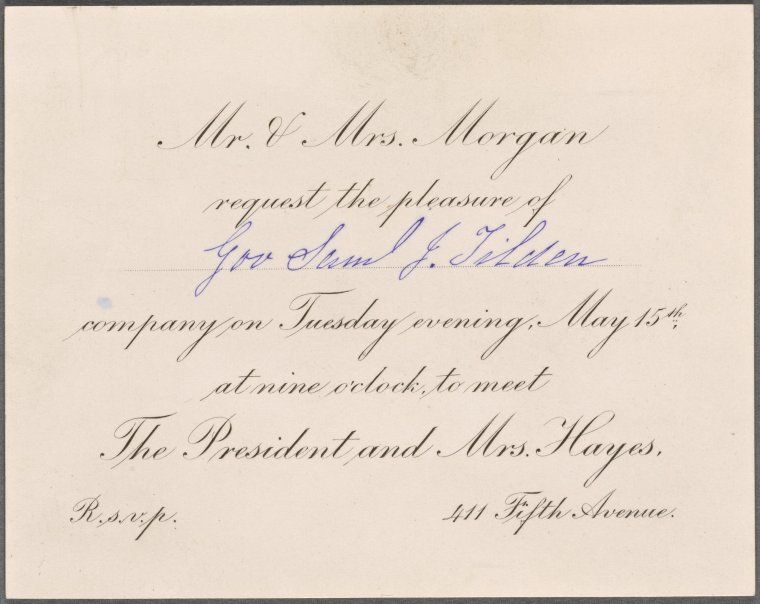 Mr. & Mrs. Morgan
request the pleasure of
Gov Saml J. Tilden
company on Tuesday evening, May 15th,
at nine o'clock, to meet
The President and Mrs. Hayes,
R.s.v.p.
411 Fifth Avenue.